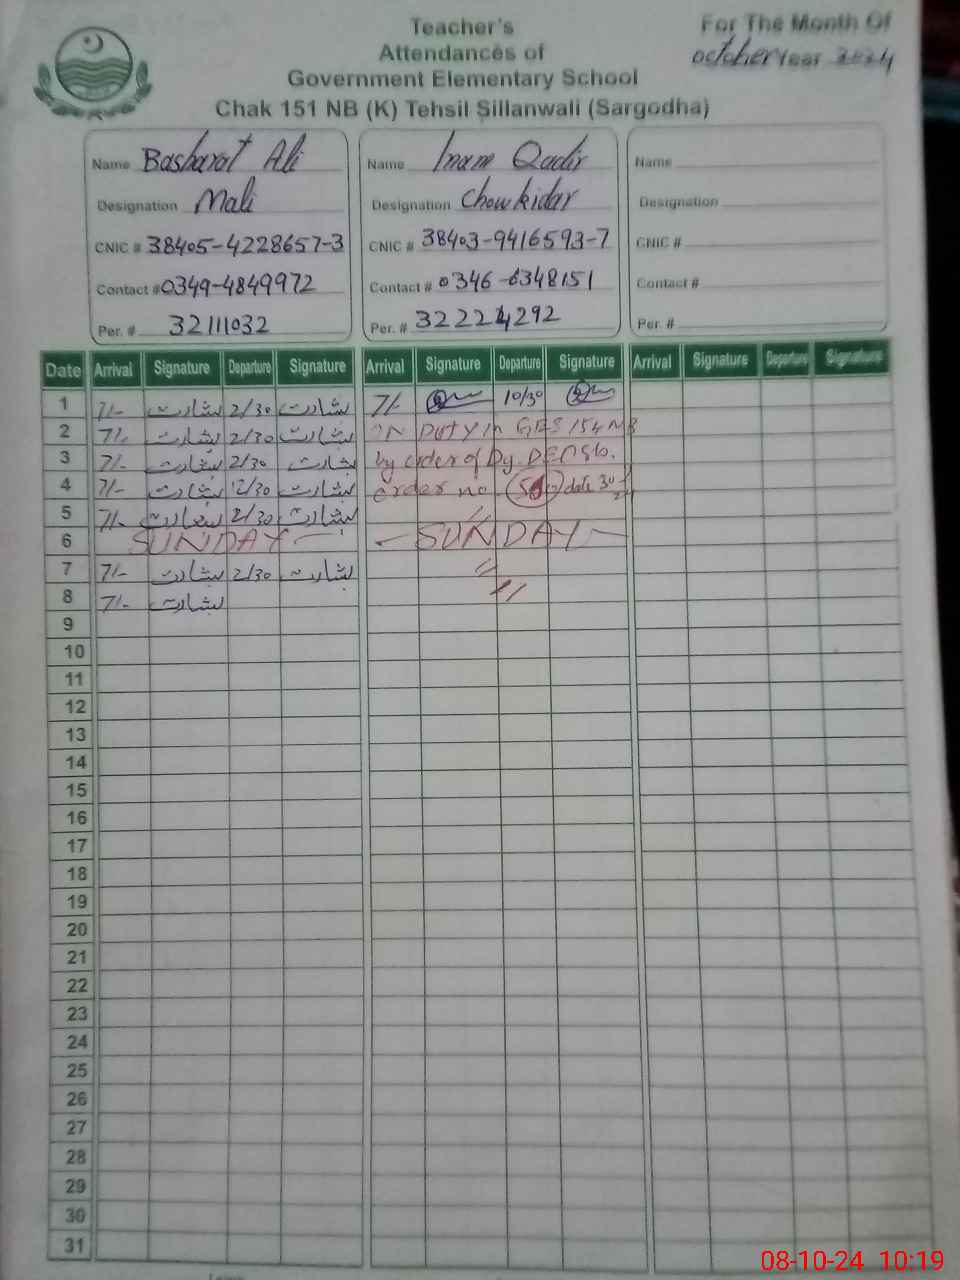 Teacher's
Attendances of
Government Elementary School
Chak 151 NB (K) Tehsil Sillanwali (Sargodha)
For The Month Of
october Year 2024
Name Basharat Ali
Designation Mali
CNIC # 38405-4228657-3
Contact # 0349-4849972
Per. # 32111032
Name Inam Qadir
Designation Chowkidar
CNIC # 38403-9416593-7
Contact # 0346-6348151
Per. # 32224292
Name
Designation
CNIC #
Contact #
Per. #
Date Arrival Signature Departure Signature Arrival Signature Departure Signature Arrival Signature Departure Signature
1 7/- بشارت 2/30 بشارت 7/- 10/30
2 7/- بشارت 2/30 بشارت ON DUTY in GES 154 NB
3 7/- بشارت 2/30 بشارت by order of Dy. DEO
4 7/- بشارت 12/30 بشارت order no. date
5 7/- بشارت 2/30 بشارت //
6 SUNDAY - - SUNDAY -
7 7/- بشارت 2/30 بشارت //
8 7/- بشارت //
9
10
11
12
13
14
15
16
17
18
19
20
21
22
23
24
25
26
27
28
29
30
31
08-10-24 10:19